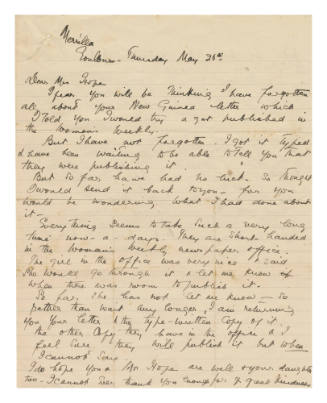 Merilla
Goulburn - Thursday May 25th
Dear Mrs Hope
I fear you will be thinking I have forgotten
all about your New Guinea letter which
I told you I would try & get published in
the Womans Weekly.
But I have not forgotten. I got it typed
& have been waiting to be able to tell you that
they were publishing it.
But so far have had no luck. So thought
I would send it back to you - for you
would be wondering what I had done about
it -
Everything seems to take such a very long
time now-a-days. They are short handed
in the Womans Weekly newspaper office.
The girl in the office was very nice & said
she would go through it & let me know if
when there was room to publish it.
So far, she has not let me know - so
rather than wait any longer, I am returning
you your letter & the type-written copy of it.
The other copy they have in the office & I
feel sure they will publish it but when
I cannot say
I do hope you & Mr Hope are well & your daughter
too - I cannot ever thank you enough for yr great kindness